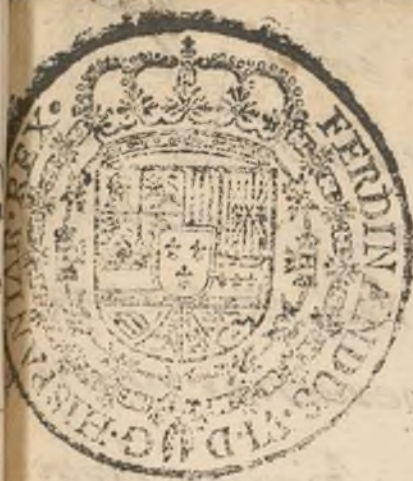 FERDINANDUS·VI·D·G·HISPANIAR·REX·